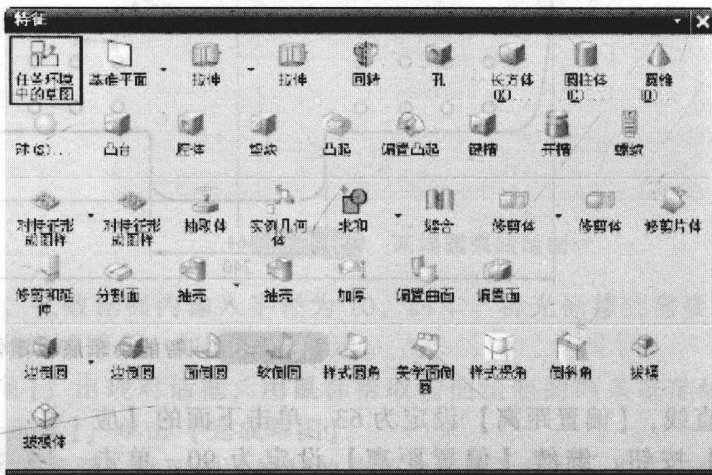 特征
任务环境中的草图 基准平面 拉伸 拉伸 回转 孔 长方体(K)... 圆柱体(C)... 圆锥(O)...
球(S)... 凸台 腔体 垫块 凸起 偏置凸起 键槽 开槽 螺纹
对特征形成图样 对特征形成图样 抽取体 实例几何体 求和 缝合 修剪体 修剪体 修剪片体
修剪和延伸 分割面 抽壳 抽壳 加厚 偏置曲面 偏置面
边倒圆 边倒圆 面倒圆 软倒圆 样式圆角 美学面倒圆 样式拐角 倒斜角 拔模
拔模体